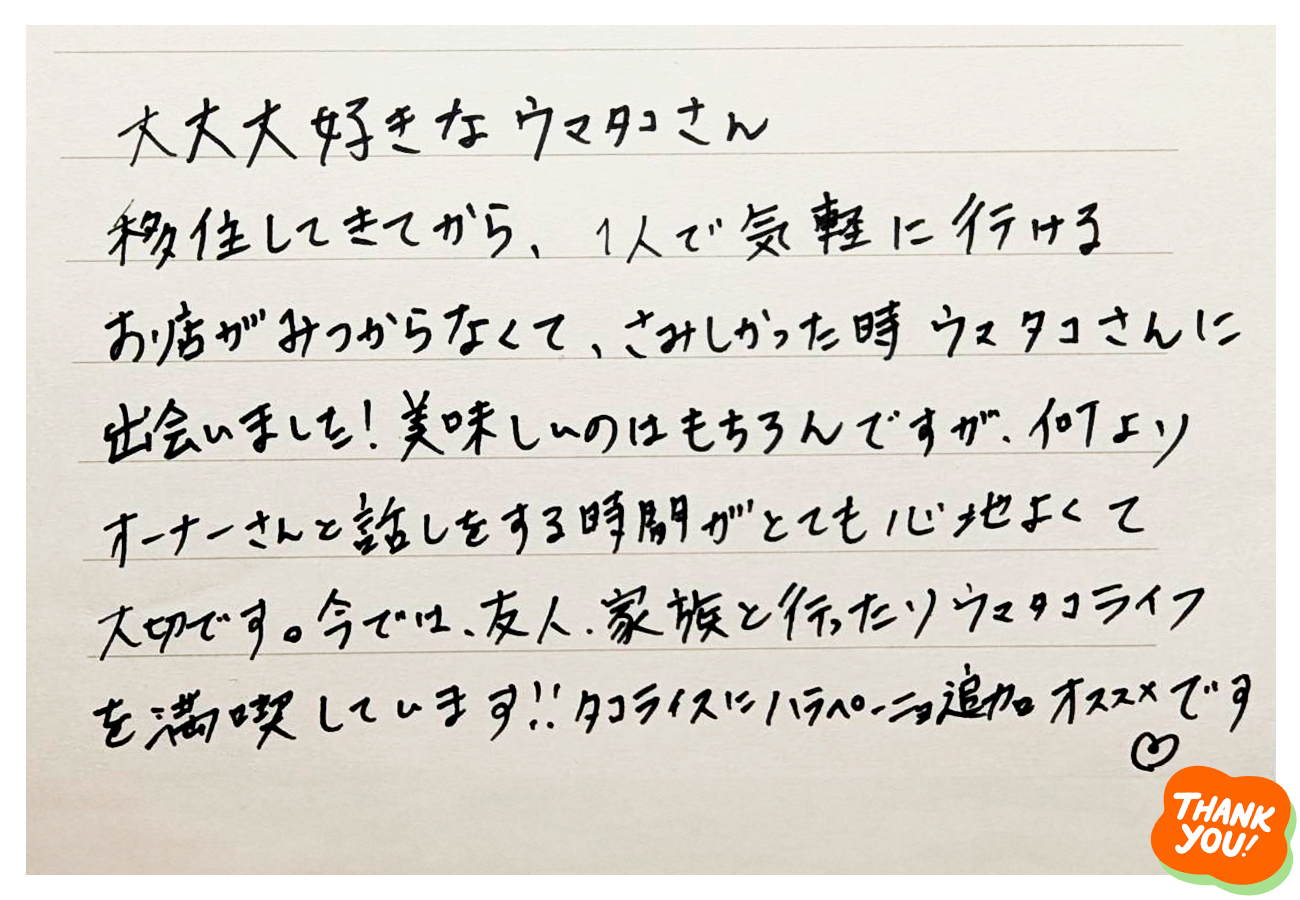 大大大好きなウマタコさん
移住してきてから、1人で気軽に行ける
お店がみつからなくて、さみしかった時ウマタコさんに
出会いました!美味しいのはもちろんですが、何より
オーナーさんと話しをする時間がとても心地よくて
大切です。今では、友人、家族と行ったりウマタコライフ
を満喫しています!!タコライスにハラペーニョ追加オススメです
THANK
YOU!